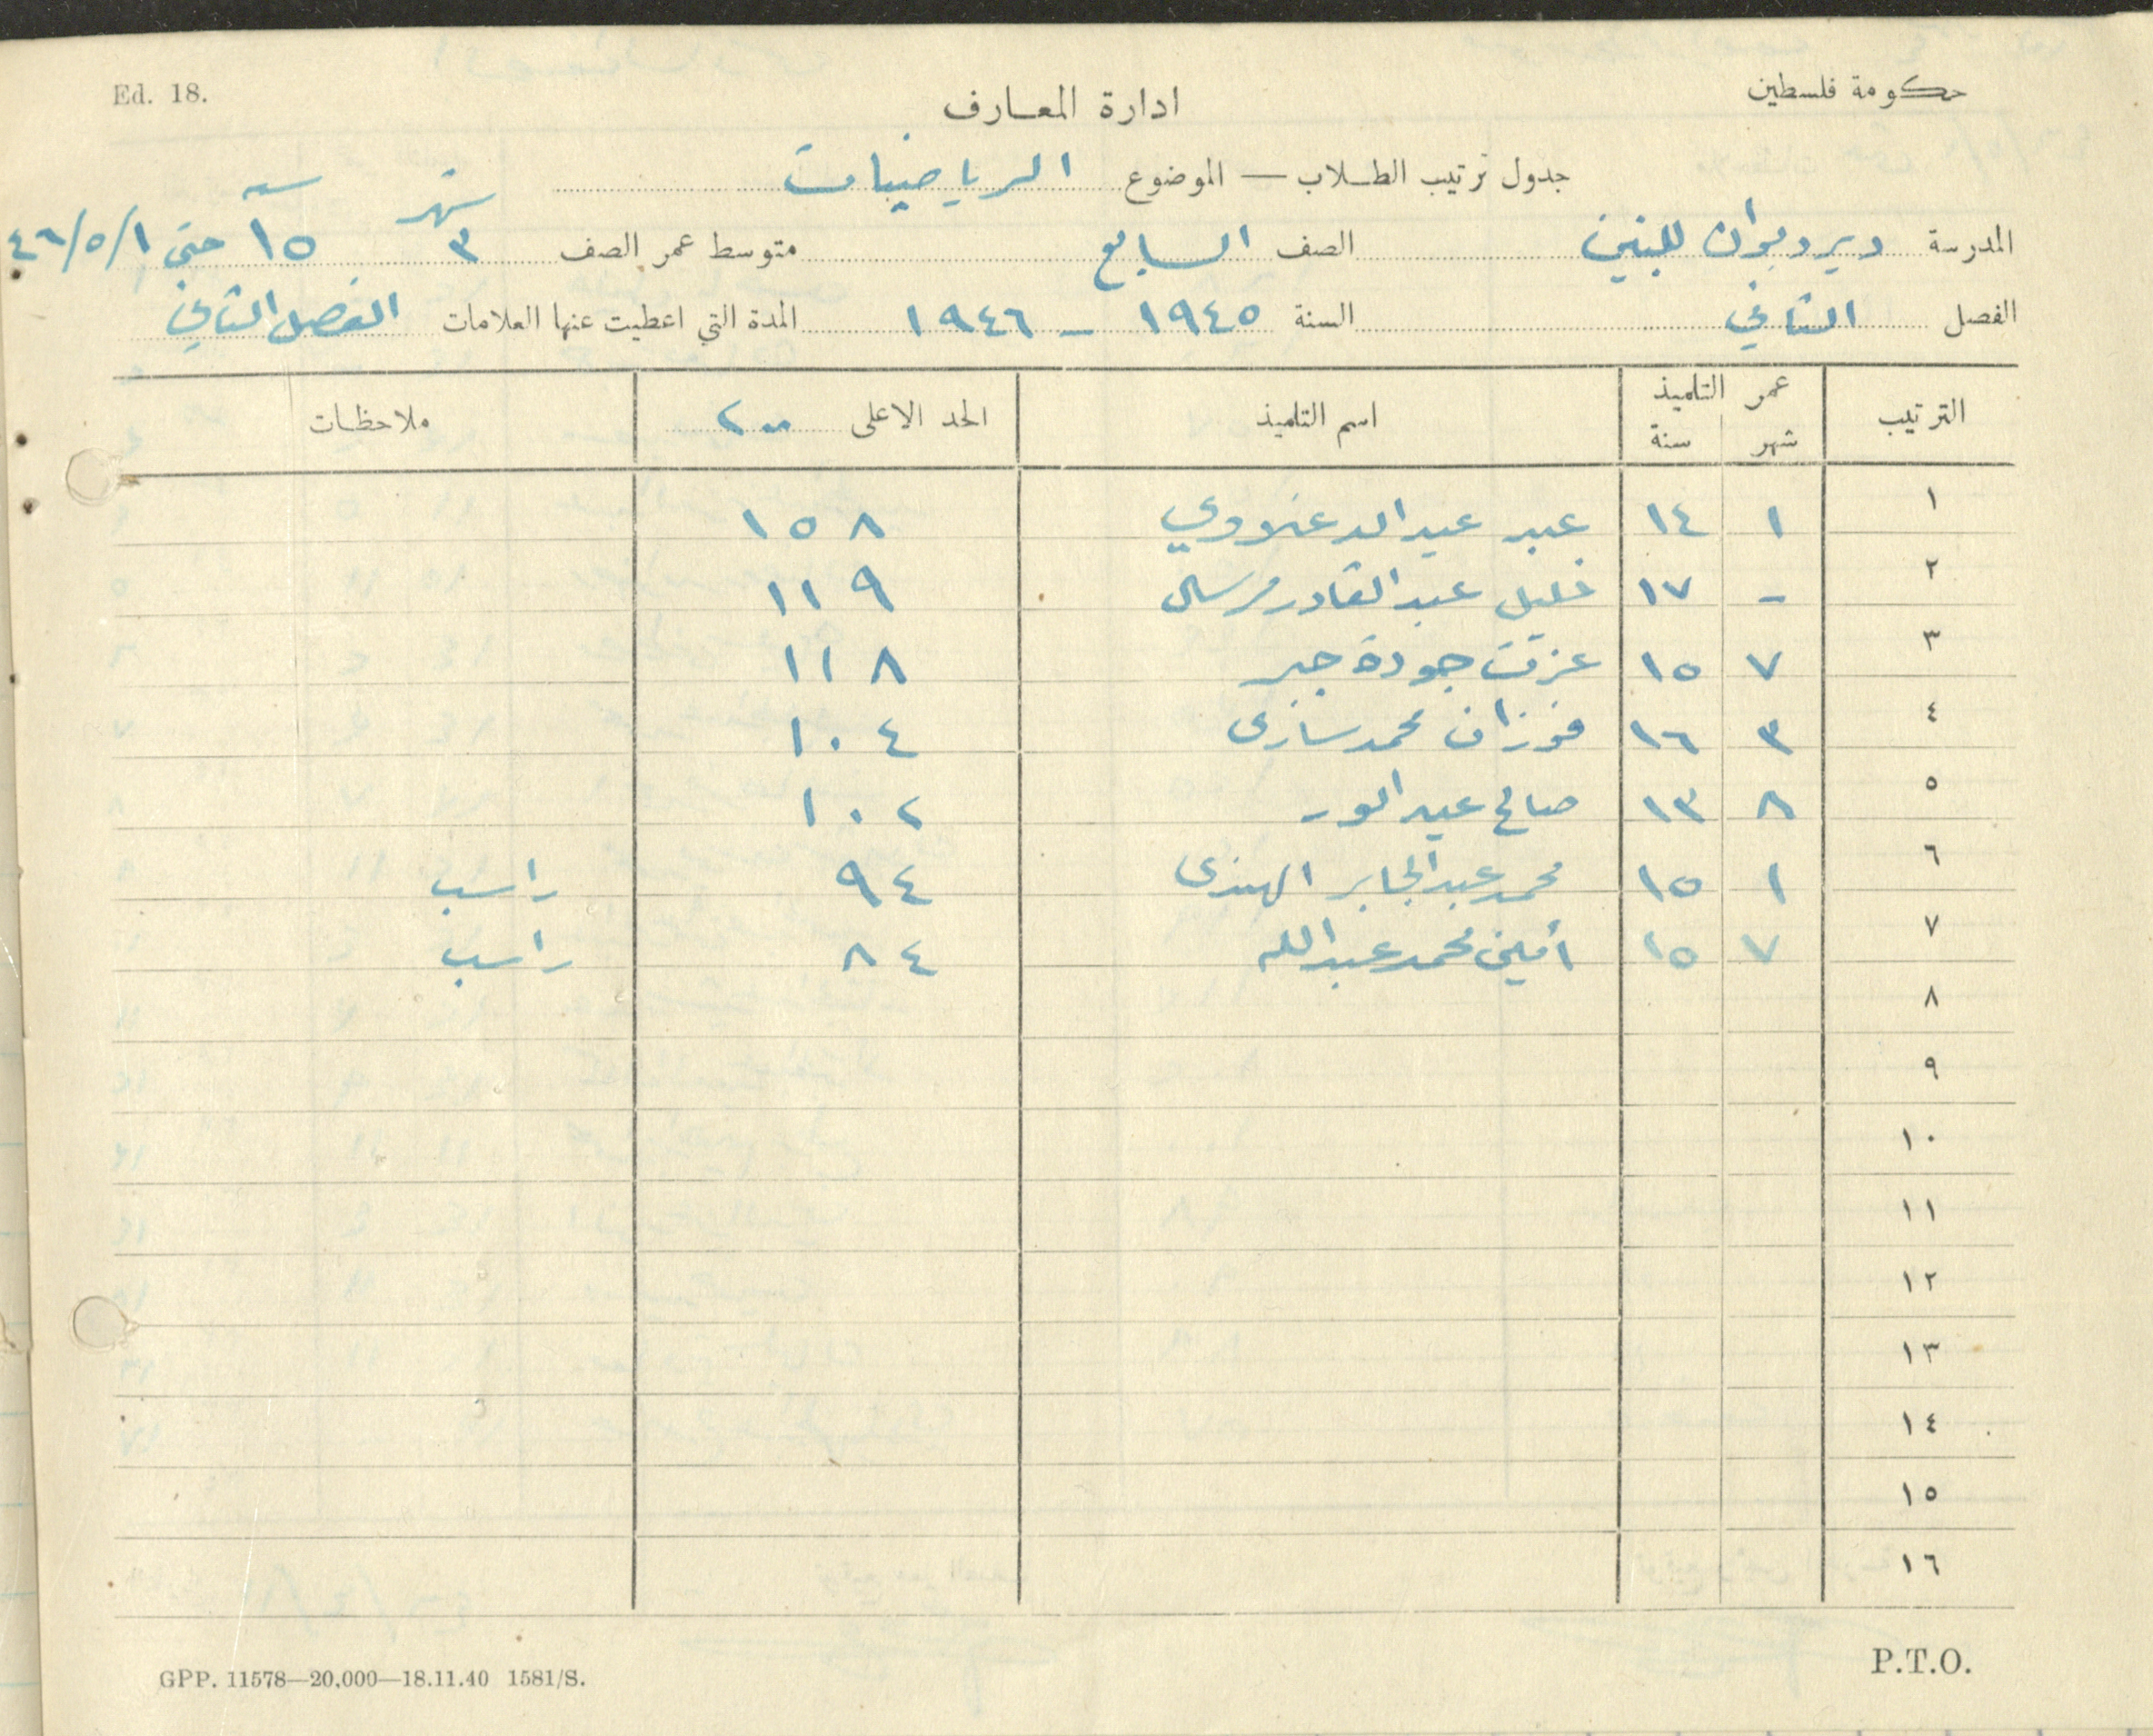 Ed. 18.
حكومة فلسطين
ادارة المعارف
جدول ترتيب الطلاب — الموضوع الرياضيات
المدرسة ديردبوان للبنين الصف السابع متوسط عمر الصف ٣ شهر ١٥ سنه حتى ٤٦/٥/١
الفصل الثاني السنة ١٩٤٥ – ١٩٤٦ المدة التي اعطيت عنها العلامات الفصل الثاني
الترتيب عمر التلميذ شهر سنة اسم التلميذ الحد الاعلى ٢٠٠ ملاحظات
١ ١ ١٤ عبد ١٥٨
٢ – ١٧ خليل عبد القادر ١١٩
٣ ٧ ١٥ عزت جودة جبر ١١٨
٤ ٣ ١٦ فوزان محمد ١٠٤
٥ ٨ ١٣ صالح ١٠٢
٦ ١ ١٥ محمد عبد الجابر الهندى ٩٤ راسب
٧ ٧ ١٥ أمين محمد عبد الله ٨٤ راسب
٨
٩
١٠
١١
١٢
١٣
١٤
١٥
١٦
GPP. 11578—20,000—18.11.40 1581/S.
P.T.O.